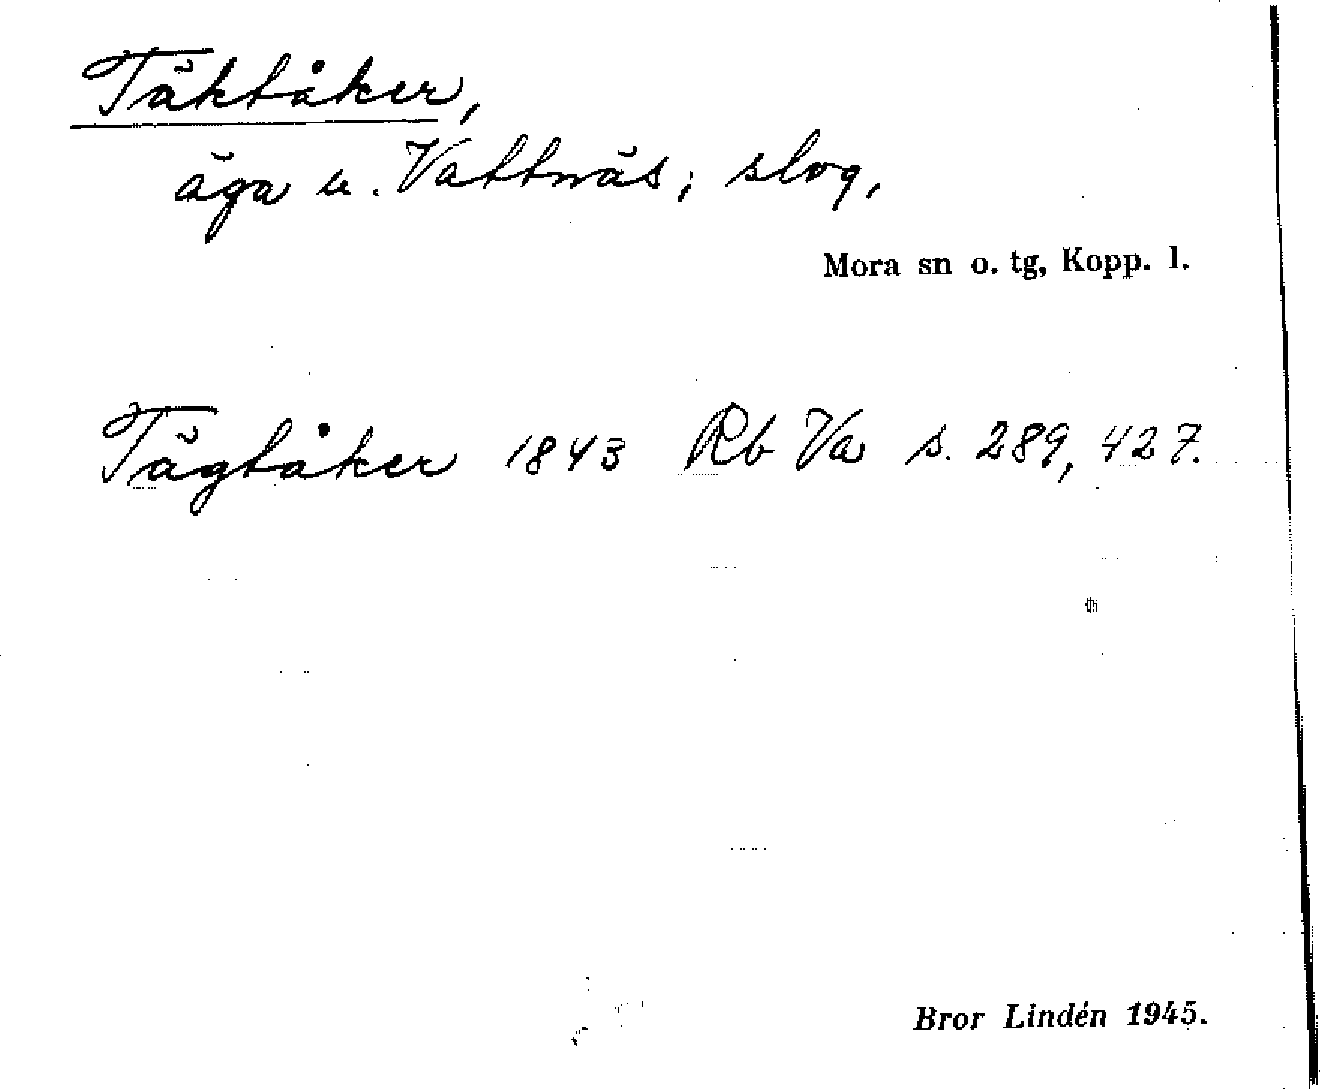 Täktåker,
äga u. Vattnäs; slog,
Mora sn o. tg, Kopp. l.
Tägtåker 1843 Rb Va s. 289, 427.
Bror Lindén 1945.